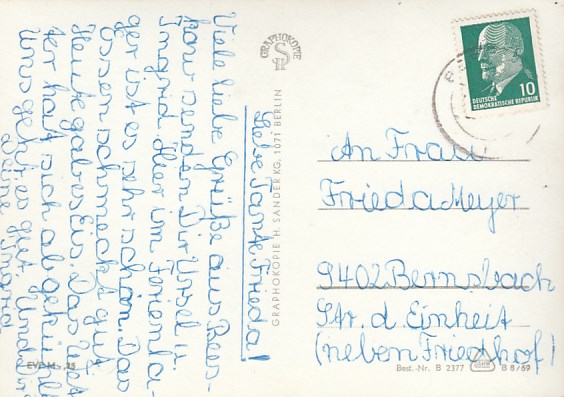 Liebe Tante Frieda!
Viele liebe Grüße aus Bees-
kow senden Dir Ursel u.
Ingrid. Hier im Ferienla-
ger ist es sehr schön. Das
Essen schmeckt gut.
Heute gab es Eis. Das Wet-
ter hat sich abgekühlt.
Uns geht es gut. Und
Deine Ingrid
GRAPHOKOPIE
GRAPHOKOPIE H. SANDER KG, 1071 BERLIN
10
DEUTSCHE
DEMOKRATISCHE REPUBLIK
An Frau
Frieda Meyer
9402 Bernsbach
Str. d. Einheit
(neben Friedhof)
Best.-Nr. B 2377
B 8/69